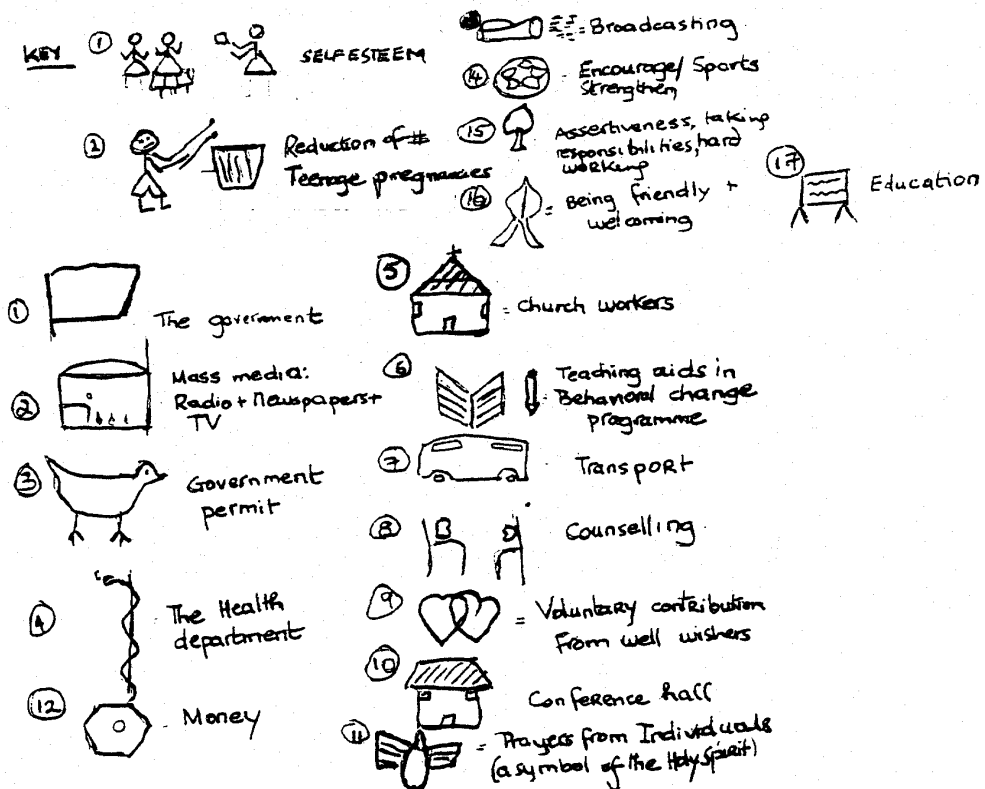 KEY
① SELF ESTEEM
② Reduction of #
Teenage pregnancies
= Broadcasting
⑭ Encourage/ Sports
Strengthen
⑮ Assertiveness, taking
responsibilities, hard
working
⑯ = Being friendly +
welcoming
⑰ Education
① The government
② Mass media:
Radio + Newspapers +
TV
③ Government
permit
④ The Health
department
⑫ Money
⑤ = Church workers
⑥ Teaching aids in
Behavioral change
programme
⑦ Transport
⑧ Counselling
⑨ = Voluntary contribution
From well wishers
⑩ Conference hall
⑪ = Prayers from Individuals
(a symbol of the Holy Spirit)